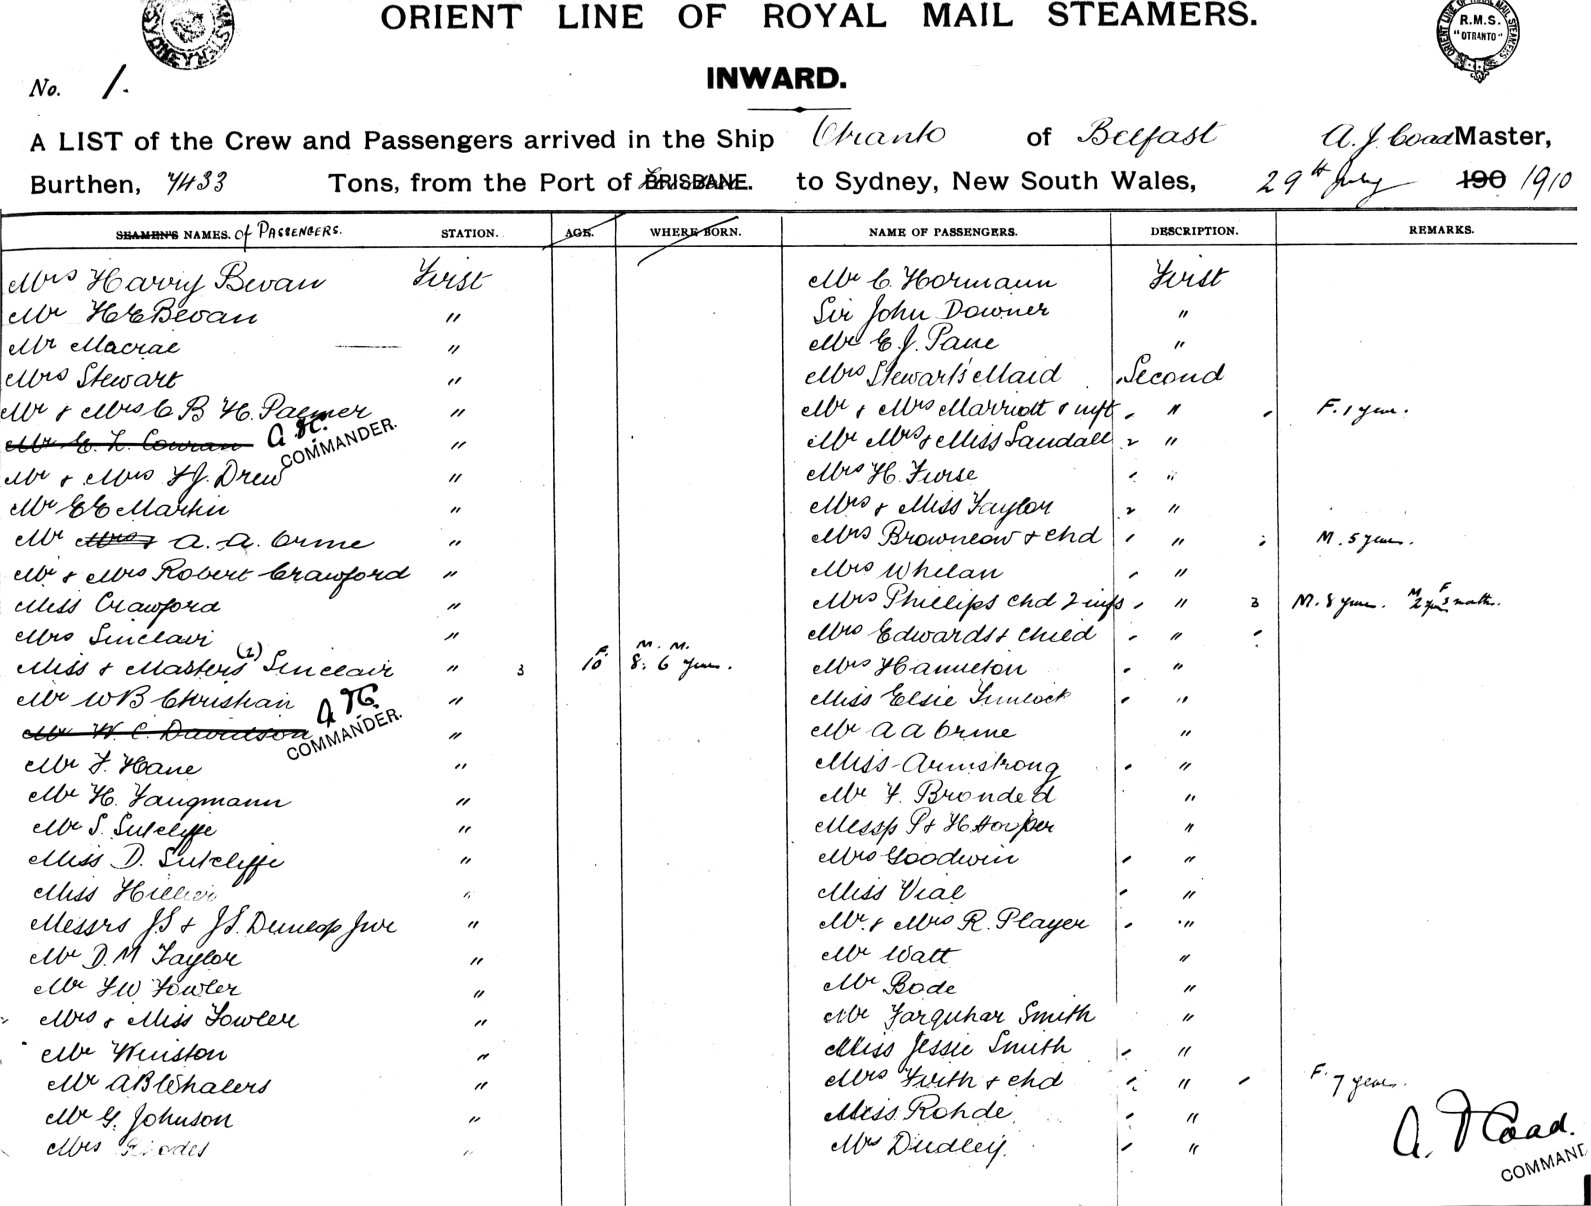 ORIENT LINE OF ROYAL MAIL STEAMERS.
R.M.S. "OTRANTO"
INWARD.
No. 1.
A LIST of the Crew and Passengers arrived in the Ship Otranto of Belfast A. J. Coad Master,
Burthen, 7433 Tons, from the Port of BRISBANE. to Sydney, New South Wales, 29th July 190 1910
SEAMEN'S NAMES. of PASSENGERS. STATION. AGE. WHERE BORN. NAME OF PASSENGERS. DESCRIPTION. REMARKS.
Mrs Harry Bevan First
Mr H E Bevan "
Mr Macrae "
Mrs Stewart "
Mr & Mrs C B H. Palmer "
Mr E. L. Conran "
COMMANDER.
Mr & Mrs F J. Drew "
Mr E E Martin "
Mr Mrs & A. A. Orme "
Mr & Mrs Robert Crawford "
Miss Crawford "
Mrs Sinclair "
Miss & Masters (2) Sinclair " 3 F. 10 M. M. 8. 6 years.
Mr W B Christian "
Mr W. C. Davidson "
COMMANDER.
Mr F. Hane "
Mr H. Langmann "
Mr S. Sutcliffe "
Miss D. Sutcliffe "
Miss Hillier "
Messrs J S & J S. Dunlop Jnr "
Mr D. M Taylor "
Mr F W Fowler "
Mrs & Miss Fowler "
Mr Winston "
Mr A B Whalers "
Mr G. Johnson "
Mrs "
Mr C. Hormann First
Sir John Downer "
Mr E. J. Pane "
Mrs Stewart's Maid Second
Mr & Mrs Marriott & inft " F. 1 year.
Mr Mrs & Miss Sandall "
Mrs H. Furse "
Mrs & Miss Taylor "
Mrs Brownlow & chd " M. 5 years.
Mrs Whelan "
Mrs Phillips chd 2 infs " 3 M. 8 years. M 2 yrs F 3 months.
Mrs Edwards & child "
Mrs Hamilton "
Miss Elsie "
Mr A A Orme "
Miss Armstrong "
Mr F. Bronded "
Messrs P & H Hooper "
Mrs Goodwin "
Miss Vial "
Mr. & Mrs R. Player "
Mr Watt "
Mr Bode "
Mr Farquhar Smith "
Miss Jessie Smith "
Mrs Firth & chd " F. 7 years.
Miss Rohde "
Mrs Dudley. "
A. J Coad.
COMMAND